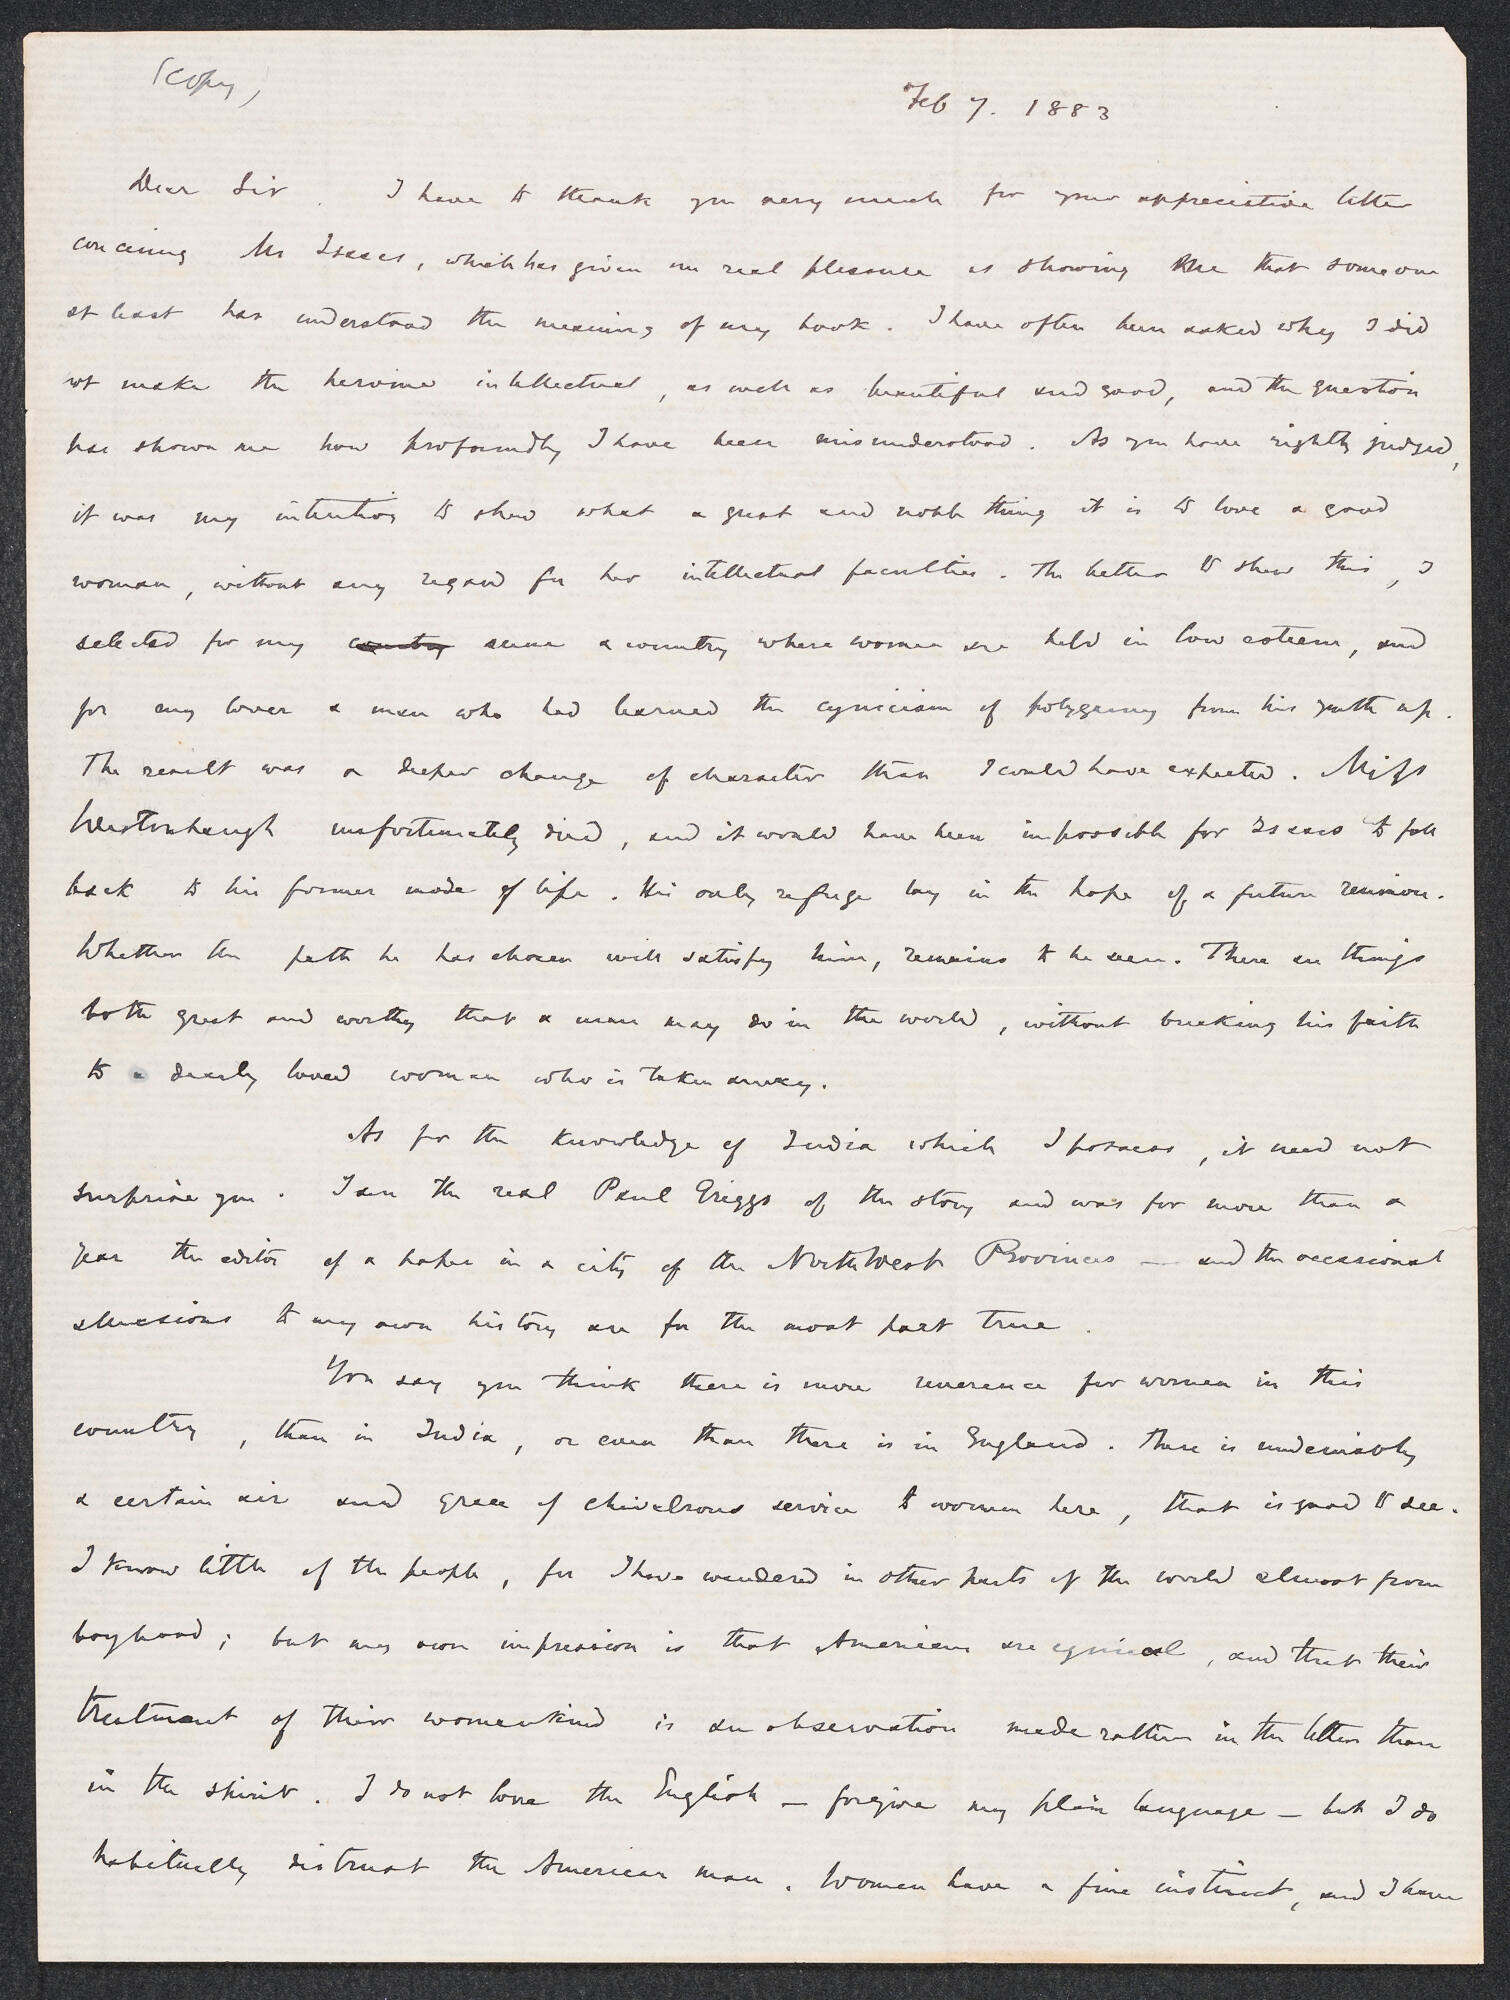 (Copy)
Feb 7. 1883
Dear Sir. I have to thank you very much for your appreciative letter
concerning Mr Isaacs, which has given me real pleasure as showing me that someone
at least has understood the meaning of my book. I have often been asked why I did
not make the heroine intellectual, as well as beautiful and good, and the question
has shown me how profoundly I have been misunderstood. As you have rightly judged,
it was my intention to shew what a great and noble thing it is to love a good
woman, without any regard for her intellectual faculties. The better to shew this, I
selected for my country scene a country where women are held in low esteem, and
for my lover a man who had learned the cynicism of polygamy from his youth up.
The result was a deeper change of character than I could have expected. Miss
Westonhaugh unfortunately died, and it would have been impossible for Isaacs to fall
back to his former mode of life. His only refuge lay in the hope of a future reunion.
Whether the path he has chosen will satisfy him, remains to be seen. There are things
both great and worthy that a man may do in the world, without breaking his faith
to a dearly loved woman who is taken away.
As for the knowledge of India which I possess, it need not
surprise you. I am the real Paul Griggs of the story and was for more than a
year the editor of a paper in a city of the NorthWest Provinces — and the occasional
allusions to my own history are for the most part true.
You say you think there is more reverence for women in this
country, than in India, or even than there is in England. There is undeniably
a certain air and grace of chivalrous service to women here, that is good to see.
I know little of the people, for I have wandered in other parts of the world almost from
boyhood; but my own impression is that Americans are cynical, and that their
treatment of their womenkind is an observation made rather in the letter than
in the spirit. I do not love the English — forgive my plain language — but I do
habitually distrust the American man. Women have a fine instinct, and I have